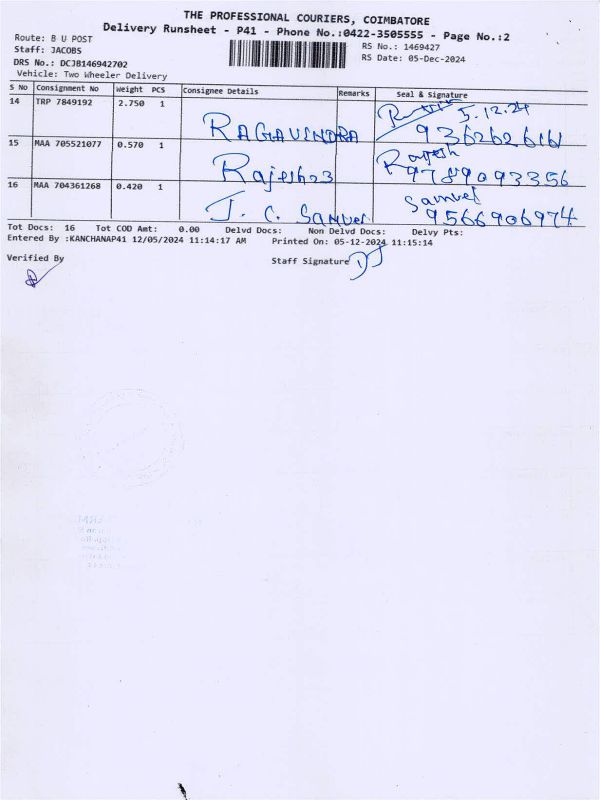 THE PROFESSIONAL COURIERS, COIMBATORE
Delivery Runsheet - P41 - Phone No.:0422-3505555 - Page No.:2
Route: B U POST
RS No.: 1469427
Staff: JACOBS
RS Date: 05-Dec-2024
DRS No.: DCJB146942702
Vehicle: Two Wheeler Delivery
S No Consignment No Weight PCS Consignee Details Remarks Seal & Signature
14 TRP 7849192 2.750 1 RAGAVINDRA 5.12.24
15 MAA 705521077 0.570 1 Rajesh23 Rajesh 9789093356
16 MAA 704361268 0.420 1 J. C. Samuel Samuel 9566906974
Tot Docs: 16 Tot COD Amt: 0.00 Delvd Docs: Non Delvd Docs: Delvy Pts:
Entered By :KANCHANAP41 12/05/2024 11:14:17 AM Printed On: 05-12-2024 11:15:14
Verified By Staff Signature